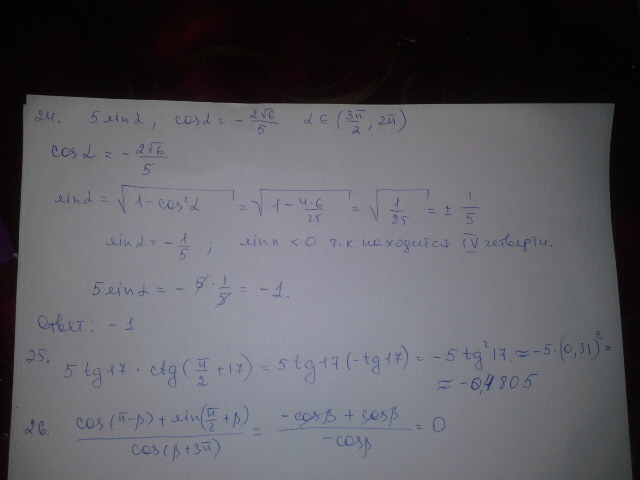 24. 5 sin α, cos α = - 2√6/5 α ∈ (3π/2; 2π)
cos α = - 2√6/5
sin α = √(1 - cos²α) = √(1 - 4·6/25) = √(1/25) = ± 1/5
sin α = - 1/5 ; sin n < 0 т.к находится IV четверти.
5 sin α = - 5 · 1/5 = - 1.
Ответ: - 1.
25. 5 tg 17 · ctg (π/2 + 17) = 5 tg 17 (- tg 17) = - 5 tg² 17 ≈ - 5 · (0,31)² =
≈ - 0,4805
26. (cos (π - β) + sin (π/2 + β)) / cos (β + 3π) = (- cos β + cos β) / - cos β = 0